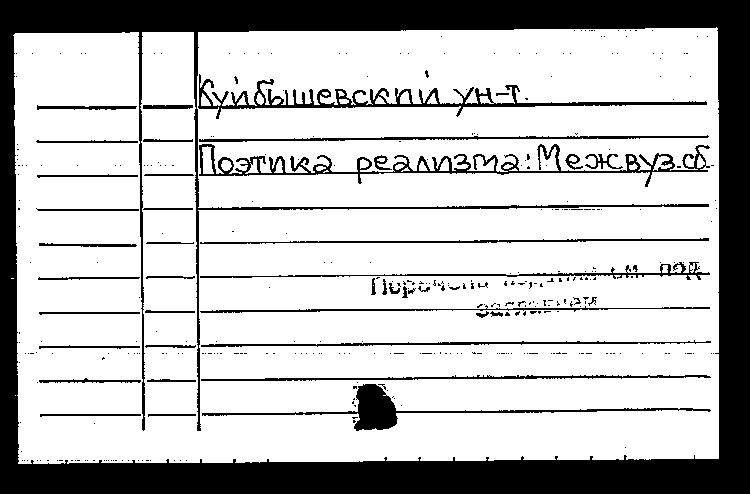 Куйбышевский ун-т.
Поэтика реализма: Межвуз.сб
Перечень изданий см. под
заглавием